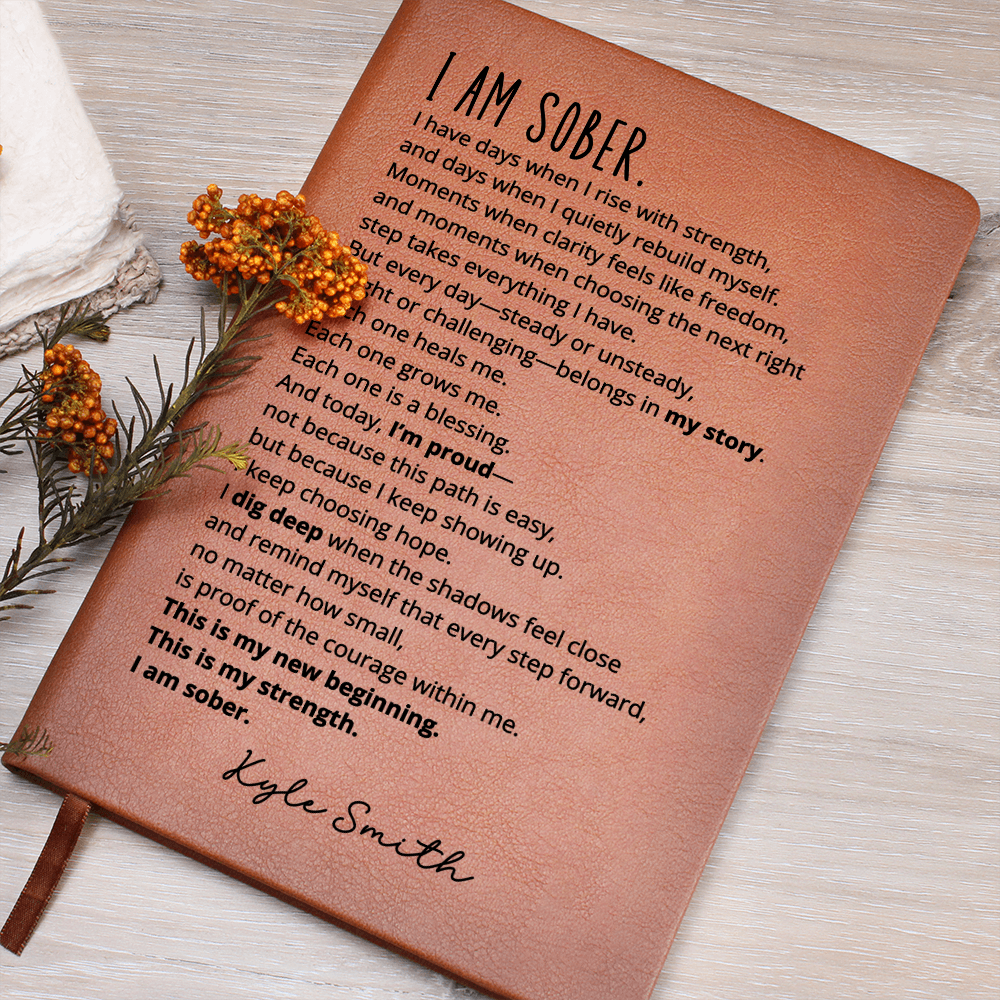 I AM SOBER.
I have days when I rise with strength,
and days when I quietly rebuild myself.
Moments when clarity feels like freedom,
and moments when choosing the next right
step takes everything I have.
But every day—steady or unsteady,
ght or challenging—belongs in my story.
ch one heals me.
Each one grows me.
Each one is a blessing.
And today, I'm proud—
not because this path is easy,
but because I keep showing up.
keep choosing hope.
I dig deep when the shadows feel close
and remind myself that every step forward,
no matter how small,
is proof of the courage within me.
This is my new beginning.
This is my strength.
I am sober.
Kyle Smith